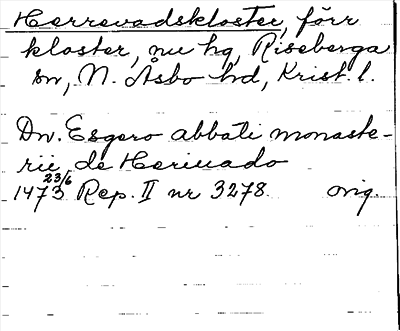 Herrevadskloster, förr
kloster, nu hg, Riseberga
sn, N. Åsbo hd, Krist. l.
Dn. Esgero abbati monaste-
rii de Heriuado
1473 23/6 Rep. II nr 3278. orig.